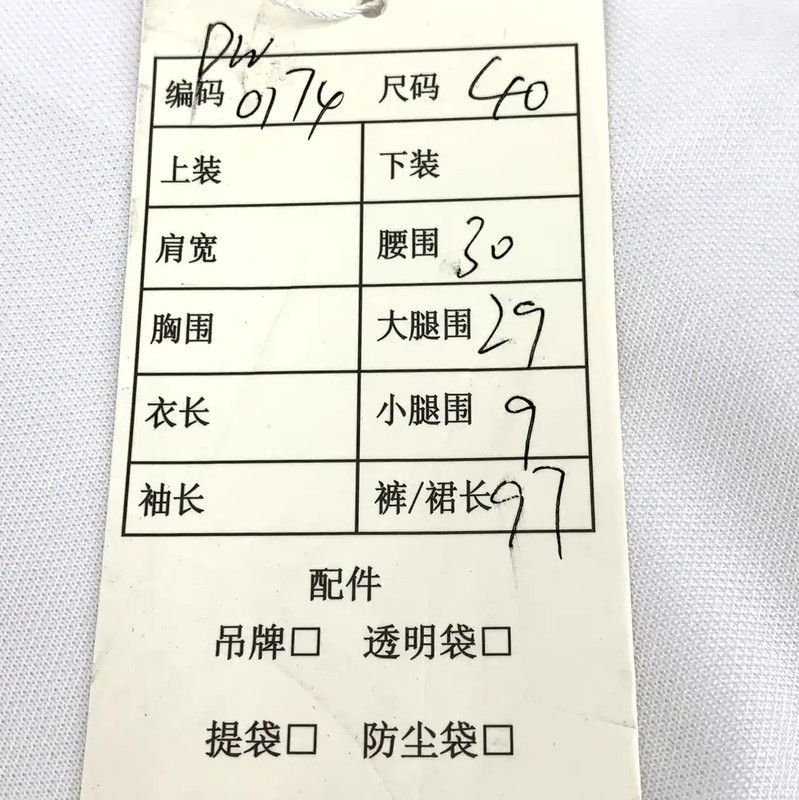 DW
编码 0174 尺码 40
上装 下装
肩宽 腰围 30
胸围 大腿围 29
衣长 小腿围 9
袖长 裤/裙长 97
配件
吊牌□ 透明袋□
提袋□ 防尘袋□